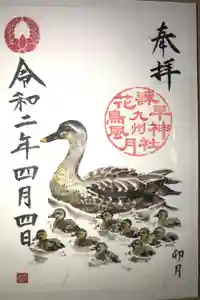 奉拝
諫早神社
九州
花鳥風月
令和二年四月四日
卯月